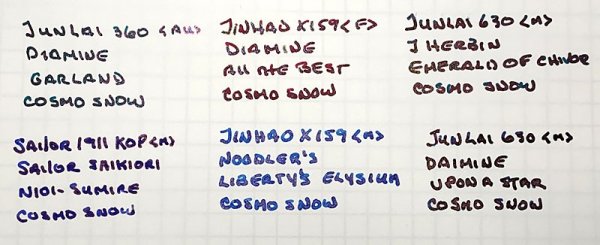 JUNLAI 360 <AU>
DIAMINE
GARLAND
COSMO SNOW
JINHAO X159 <F>
DIAMINE
ALL THE BEST
COSMO SNOW
JUNLAI 630 <M>
J HERBIN
EMERALD OF CHIVOR
COSMO SNOW
SAILOR 1911 KOP <M>
SAILOR SAIKIORI
NIOI-SUMIRE
COSMO SNOW
JINHAO X159 <M>
NOODLER'S
LIBERTY'S ELYSIUM
COSMO SNOW
JUNLAI 630 <M>
DAIMINE
UPON A STAR
COSMO SNOW